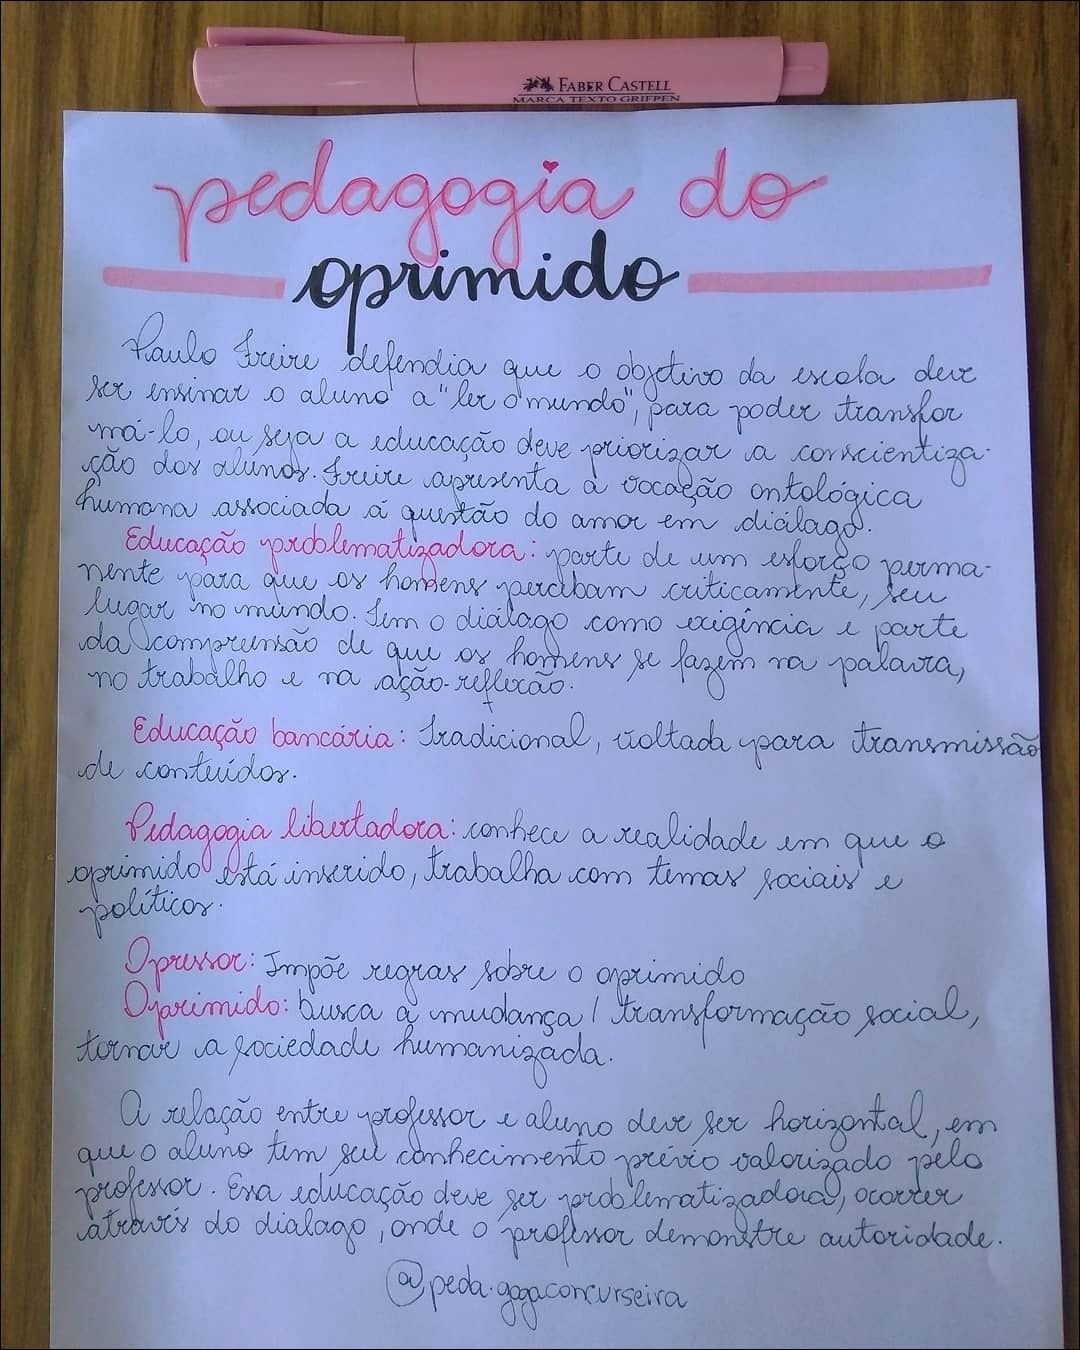 FABER CASTELL
MARCA TEXTO GRIFPEN
pedagogia do
oprimido
Paulo Freire defendia que o objetivo da escola deve
ser ensinar o aluno a "ler o mundo", para poder transfor
má-lo, ou seja a educação deve priorizar a conscientiza-
ção dos alunos. Freire apresenta a vocação ontológica
humana associada á questão do amor em diálago.
Educação problematizadora: parte de um esforço perma-
nente para que os homens percebam criticamente, seu
lugar no mundo. Tem o diálago como exigência e parte
da compreensão de que os homens se fazem na palavra,
no trabalho e na ação-reflexão.
Educação bancária: Tradicional, voltada para transmissão
de conteúdos.
Pedagogia libertadora: conhece a realidade em que o
oprimido está inserido, trabalha com temas sociais e
políticos.
Opressor: Impõe regras sobre o oprimido
Oprimido: busca a mudança / transformação social,
tornar a sociedade humanizada.
A relação entre professor e aluno deve ser horizontal, em
que o aluno tem seu conhecimento prévio valorizado pelo
professor. Essa educação deve ser problematizadora, ocorrer
através do dialago, onde o professor demonstre autoridade.
@peda.gogaconcurseira